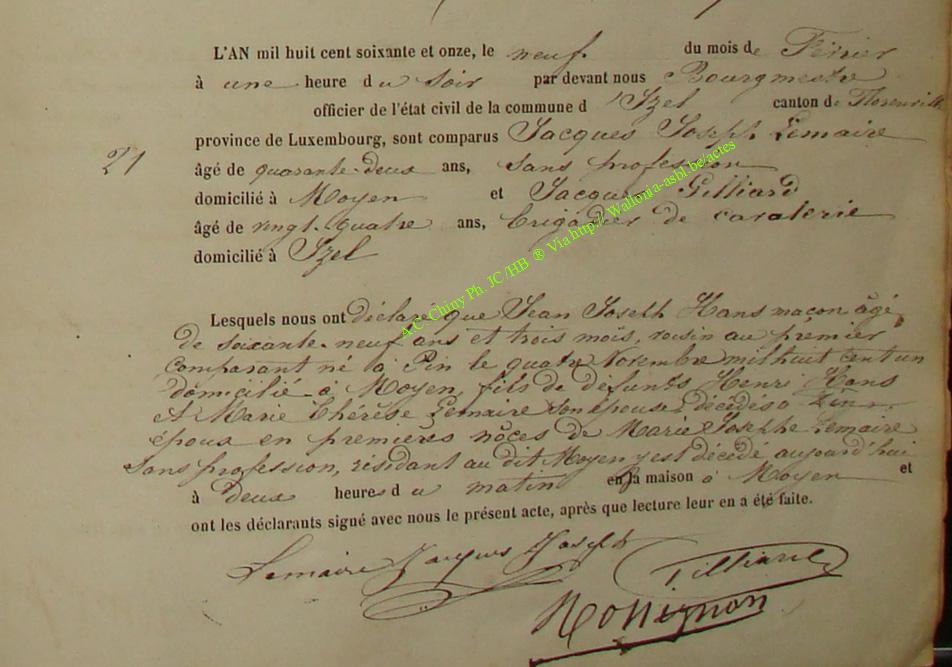 L'AN mil huit cent soixante et onze, le neuf du mois de Février
à une heure du soir par devant nous Bourgmestre
officier de l'état civil de la commune d'Izel canton de Florenville
province de Luxembourg, sont comparus Jacques Joseph Lemaire
21 âgé de quarante-deux ans, sans profession
domicilié à Moyen et Jacques Gilliard
âgé de vingt-quatre ans, brigadier de cavalerie
domicilié à Izel
Lesquels nous ont déclaré que Jean Joseph Hans maçon âgé
de soixante-neuf ans et trois mois, voisin au premier
comparant né à Pin le quatre Novembre mil huit cent un
domicilié à Moyen, fils de défunts Henri Hans
et Marie Thérèse Lemaire son épouse, décédés à Pin,
époux en premières nôces de Marie Josephe Lemaire
sans profession, résidant au dit Moyen y est décédé aujourd'hui
à deux heures du matin en sa maison à Moyen et
ont les déclarants signé avec nous le présent acte, après que lecture leur en a été faite.
Lemaire Jacques Joseph Gilliard
Rossignon
A.C. Chiny Ph. JC /HB ® Via http:// Wallonia-asbl.be/actes